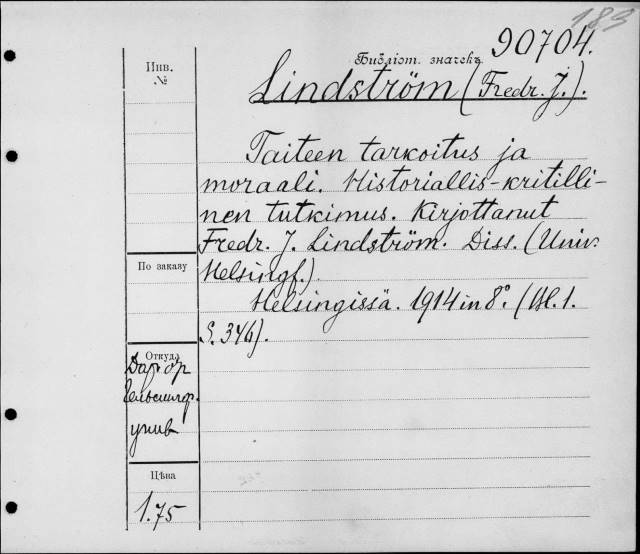 183
90704.
Библіот. значекъ
Инв.
№
Lindström (Fredr. J.).
Taiteen tarkoitus ja
moraali. Historiallis-kritilli-
nen tutkimus. Kirjottanut
Fredr. J. Lindström. Diss. (Univ.
Helsingf.)
Helsingissä. 1914 in 8°. (Bl. 1.
S. 346).
По заказу
Откуд.
Дар. от
Гельсингф.
унив
Цѣна
1.75